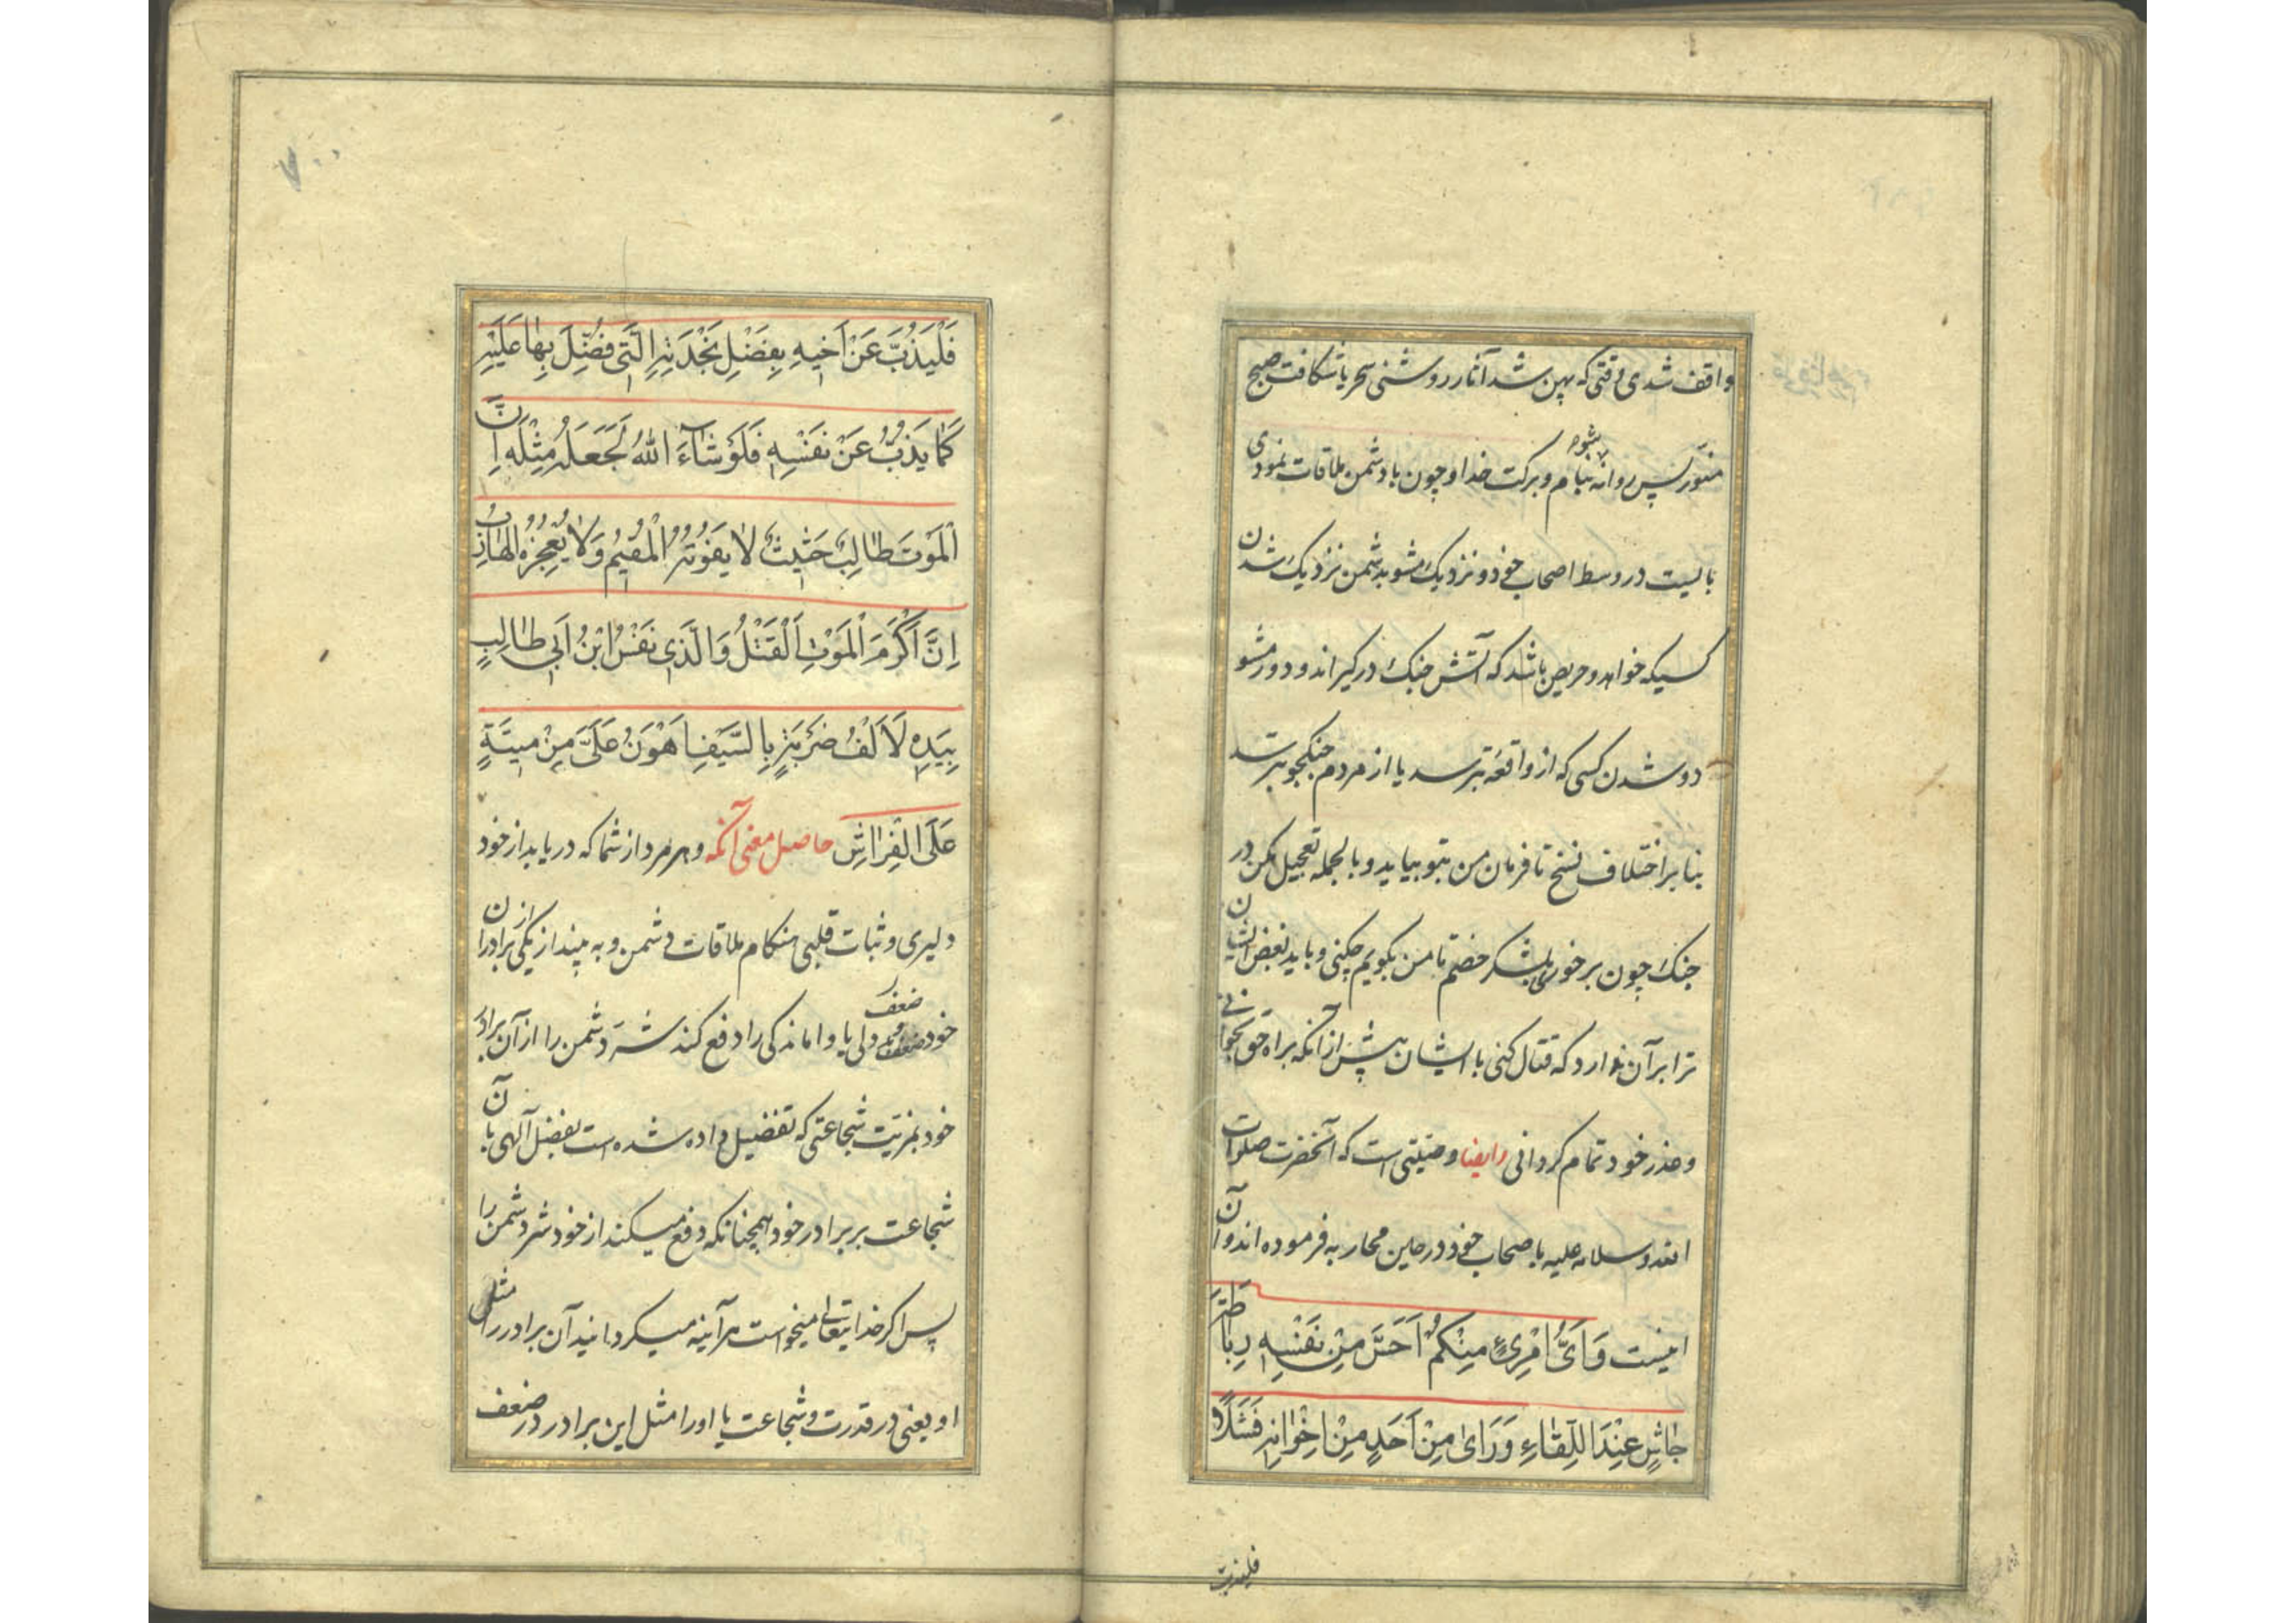 واقف شدی وقتی که پهن شد آثار روشنی سحر یا شکافت صبح
منور پس روانه شو بنام و برکت خدا و چون با دشمن ملاقات نمودی
بایست در وسط اصحاب خود و نزدیک مشو بدشمن نزدیک شدن
کسیکه خواهد و حریص باشد که آتش جنک درکیراند و دور مشو
دور شدن کسی که از واقعه بترسد یا از مردم جنکجو بترسد
بنا بر اختلاف نسخ تا فرمان من بتو بیاید و بالجمله تعجیل مکن در
جنک چون برخوری بلشکر خصم تا من بکویم چکنی و باید بغض ایشان
ترا بر آن ندارد که قتال کنی با ایشان پیش از آنکه براه حق بخوانی
و عذر خود تمام کردانی وایضا وصیتی است که آنحضرت صلوات
الله وسلامه علیه باصحاب خود در حین محاربه فرموده اند و آن
اینست وَاَیُّ امْرِئٍ مِنْکُمْ اَحَسَّ مِنْ نَفْسِهِ رِبَاطَةَ
جَاشٍ عِنْدَ اللِّقَاءِ وَرَاَیٰ مِنْ اَحَدٍ مِنْ اِخْوَانِهِ فَشَلًا
فلیذب
۷۰۰
فَلْیَذُبَّ عَنْ اَخِیهِ بِفَضْلِ نَجْدَتِهِ الَّتِی فُضِّلَ بِهَا عَلَیْهِ
کَمَا یَذُبُّ عَنْ نَفْسِهِ فَلَوْ شَاۤءَ اللهُ لَجَعَلَهُ مِثْلَهُ اِنَّ
الْمَوْتَ طَالِبٌ حَثِیثٌ لَا یَفُوتُهُ الْمُقِیمُ وَلَا یُعْجِزُهُ الْهَارِبُ
اِنَّ اَکْرَمَ الْمَوْتِ اَلْقَتْلُ وَالَّذِی نَفْسُ ابْنِ اَبِی طَالِبٍ
بِیَدِهِ لَاَلْفُ ضَرْبَةٍ بِالسَّیْفِ اَهْوَنُ عَلَیَّ مِنْ مِیتَةٍ
عَلَی الْفِرَاشِ حاصل معنی آنکه و هر مرد از شما که دریابد از خود
دلیری و ثبات قلبی هنکام ملاقات دشمن و به بیند از یکی از برادران
خود ضعف دلی یا واماندکی را دفع کند شر دشمن را از آن برادر
خود بمزیت شجاعتی که تفضیل داده شده است بفضل آلهی با آن
شجاعت بر برادر خود همچنانکه دفع میکند از خود شر دشمن را
پس اکر خدایتعالی میخواست هرآینه میکردانید آن برادر را مثل
او یعنی در قدرت و شجاعت یا او را مثل این برادر در ضعف